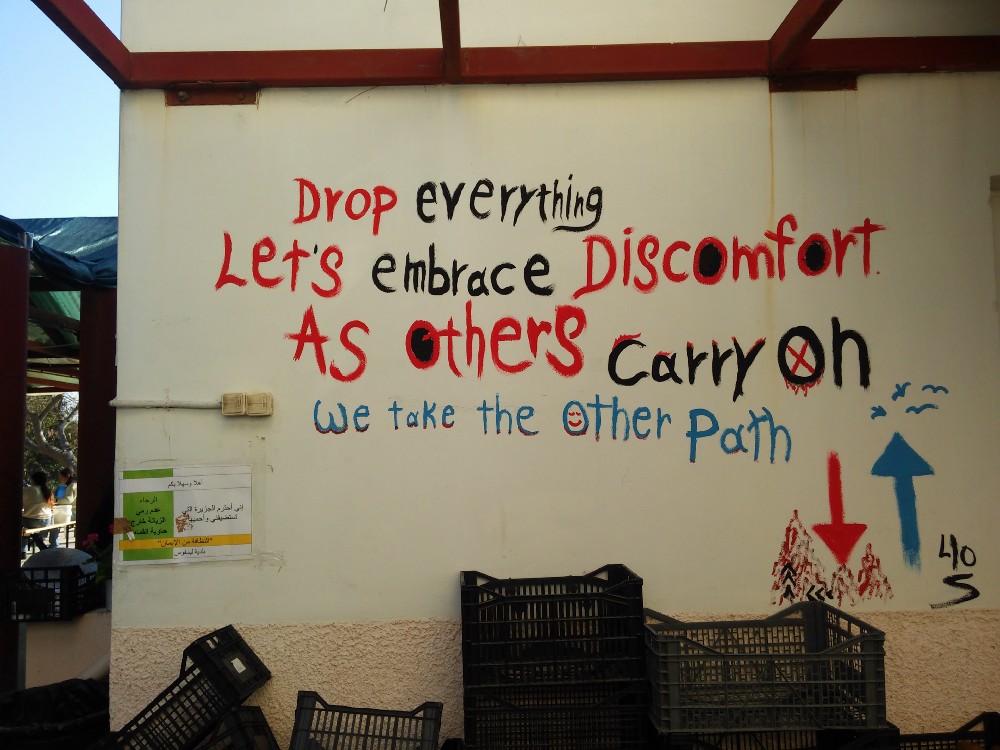 Drop everything
Let's embrace Discomfort.
As others Carry On
We take the other Path
40
S
أهلا وسهلا بكم
الرجاء
عدم رمي
الزبالة خارج
حاوية القمامة
إني أحترم الجزيرة التي
تستضيفني وأحميها
"النظافة من الإيمان"